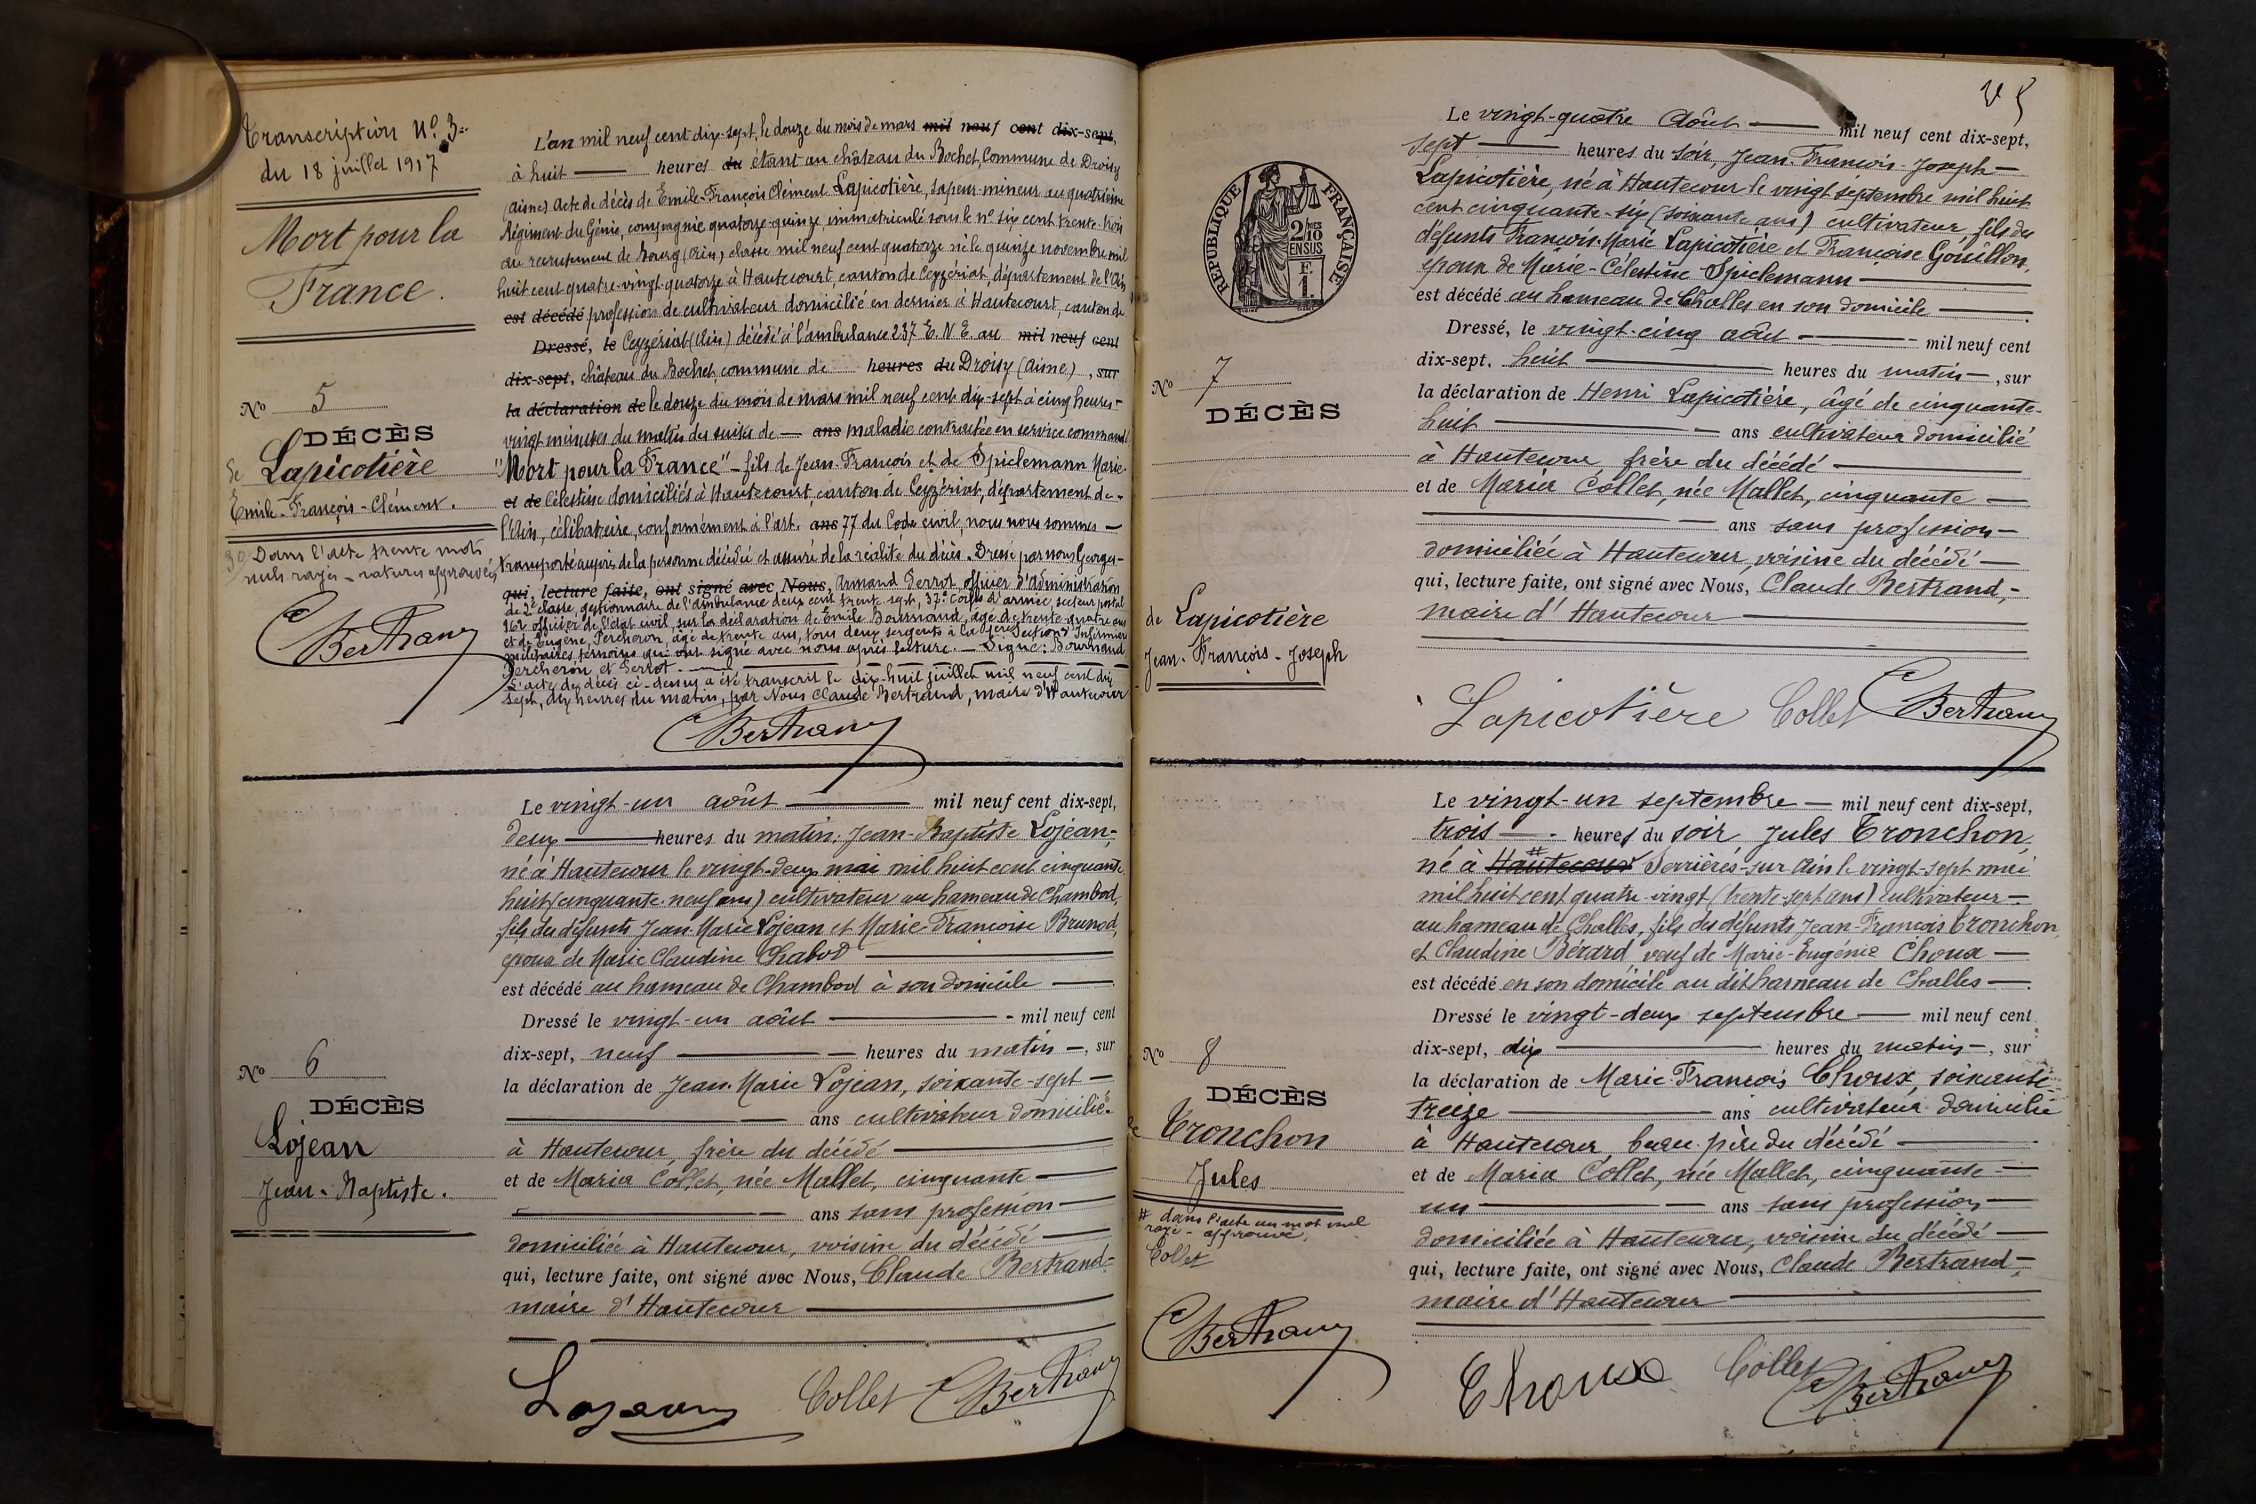 Transcription No 3
du 18 juillet 1917
Mort pour la
France.
No 5
DÉCÈS
de Lapicotière
Emile-François-Clément.
30 Dans l'acte trente mots
nuls rayés - ratures approuvées
CBertrand
L'an mil neuf cent dix-sept, le douze du mois de mars mil neuf cent dix-sept,
à huit heures du étant au château du Bochet, Commune de Droizy
(Aisne) Acte de décès de Emile-François Clément Lapicotière, sapeur-mineur au quatrième
Régiment du Génie, compagnie quatorze-quinze, immatriculé sous le no six cent trente-trois
au recrutement de Bourg (Ain), classe mil neuf cent quatorze né le quinze novembre mil
huit cent quatre-vingt-quatorze à Hautecourt, canton de Ceyzériat, département de l'Ain
est décédé profession de cultivateur domicilié en dernier à Hautecourt, canton de
Dressé, le Ceyzériat (Ain) décédé à l'ambulance 237 E.N.E au mil neuf cent
dix-sept, château du Bochet, commune de heures du Droisy (Aisne), sur
la déclaration de le douze du mois de mars mil neuf cent dix-sept à cinq heures-
vingt minutes du matin des suites de ans maladie contractée en service commandé
"Mort pour la France" - fils de Jean-François et de Spielemann Marie-
et de Célestine domiciliés à Hautecourt, canton de Ceyzériat, département de
l'Ain, célibataire, conformément à l'art. ans 77 du Code civil, nous nous sommes
transporté auprès de la personne décédée et assuré de la réalité du décès. Dressé par nous Georges-
qui, lecture faite, ont signé avec Nous, Armand Perrot, officier d'administration
de 2e classe, gestionnaire de l'ambulance deux cent trente-sept, 37e Corps d'armée, secteur postal
162 officier de l'état civil, sur la déclaration de Emile Bournaud, âgé de trente-quatre ans
et de Eugène Percheron, âgé de trente ans, tous deux sergents à la Section d'Infirmiers
militaires, témoins qui ont signé avec nous après lecture. - Signé: Bournaud
Percheron et Perrot.
L'acte de décès ci-dessus a été transcrit le dix-huit juillet mil neuf cent dix
sept, dix heures du matin, par Nous Claude Bertrand, maire d'Hautecour
CBertrand
No 6
DÉCÈS
Lojean
Jean-Baptiste.
Le vingt-un août mil neuf cent dix-sept,
deux heures du matin, Jean-Baptiste Lojean,
né à Hautecour le vingt-deux mai mil huit cent cinquante
huit (cinquante-neuf ans) cultivateur au hameau de Chambod,
fils des défunts Jean-Marie Lojean et Marie-Françoise Brunod,
époux de Marie Claudine Chabod
est décédé au hameau de Chambod à son domicile
Dressé le vingt-un août mil neuf cent
dix-sept, neuf heures du matin, sur
la déclaration de Jean-Marie Lojean, soixante-sept
ans cultivateur domicilié
à Hautecour, frère du décédé
et de Maria Collet, née Mallet, cinquante
ans sans profession
domiciliée à Hautecour, voisine du décédé
qui, lecture faite, ont signé avec Nous, Claude Bertrand
maire d'Hautecour
Lojean Collet CBertrand
25
REPUBLIQUE FRANÇAISE
2/10 EN SUS
F. 1.
No 7
DÉCÈS
de Lapicotière
Jean-François-Joseph
Le vingt-quatre Août mil neuf cent dix-sept,
sept heures du soir, Jean-François-Joseph
Lapicotière, né à Hautecour le vingt septembre mil huit
cent cinquante-six (soixante ans) cultivateur, fils des
défunts François-Marie Lapicotière et Françoise Gouillon,
époux de Marie-Célestine Spielemann
est décédé au hameau de Challes en son domicile
Dressé, le vingt-cinq août mil neuf cent
dix-sept, huit heures du matin, sur
la déclaration de Henri Lapicotière, âgé de cinquante-
huit ans cultivateur domicilié
à Hautecour frère du décédé
et de Maria Collet, née Mallet, cinquante
ans sans profession
domiciliée à Hautecour, voisine du décédé
qui, lecture faite, ont signé avec Nous, Claude Bertrand,
maire d'Hautecour
Lapicotière Collet CBertrand
No 8
DÉCÈS
de Tronchon
Jules
# dans l'acte un mot nul
rayé - approuvé.
Collet
CBertrand
Le vingt-un septembre mil neuf cent dix-sept,
trois heures du soir Jules Tronchon,
né à # Hautecour Serrières-sur Ain le vingt-sept mai
mil huit cent quatre-vingt (trente-sept ans) cultivateur
au hameau de Challes, fils des défunts Jean-François Tronchon,
et Claudine Bérard veuf de Marie-Eugénie Choux
est décédé en son domicile au dit hameau de Challes
Dressé le vingt-deux septembre mil neuf cent
dix-sept, dix heures du matin, sur
la déclaration de Marie-François Choux, soixante
treize ans cultivateur domicilié
à Hautecour, beau-père du décédé
et de Maria Collet, née Mallet, cinquante
un ans sans profession
domiciliée à Hautecour, voisine du décédé
qui, lecture faite, ont signé avec Nous, Claude Bertrand,
maire d'Hautecour
Choux Collet CBertrand